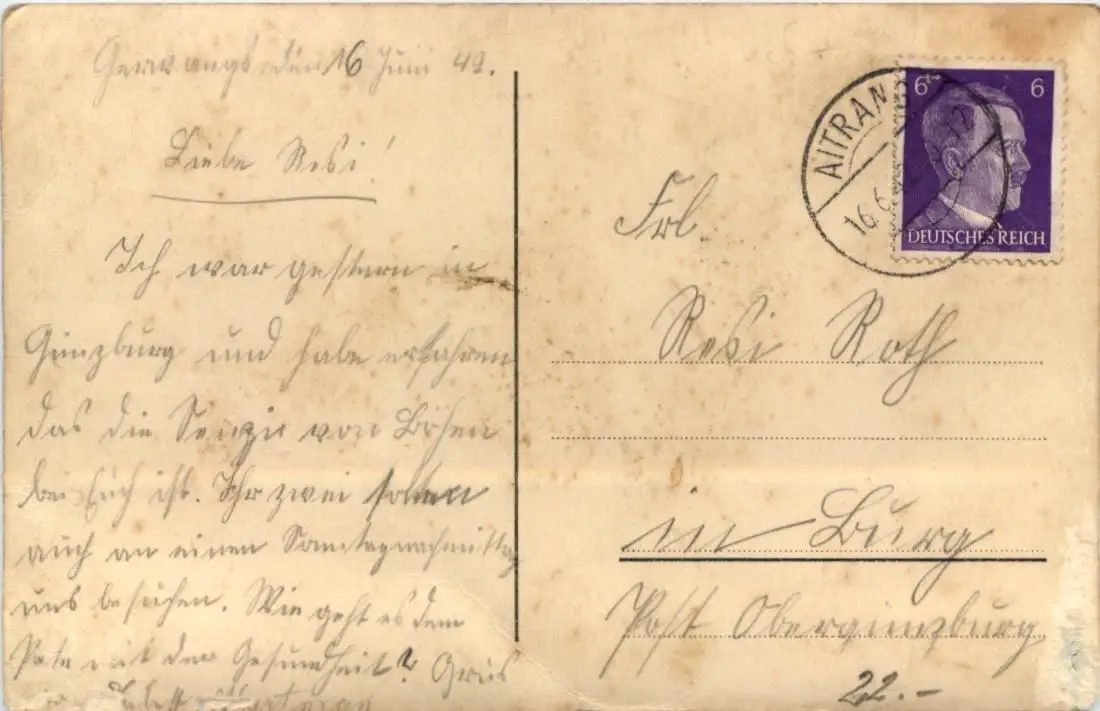 den 16 Juni 42.
Liebe Resi!
Ich war gestern in
Günzburg und habe erfahren
das die Senzi von
bei Euch ist. Ihr zwei
auch an einen Sonntagnachmittag
uns besuchen. Wie geht es dem
mit der Gesundheit? Grüs
AITRANG
16.6.
6 6
DEUTSCHES REICH
Frl.
Resi Roth
in Burg
Post Obergünzburg
22.–